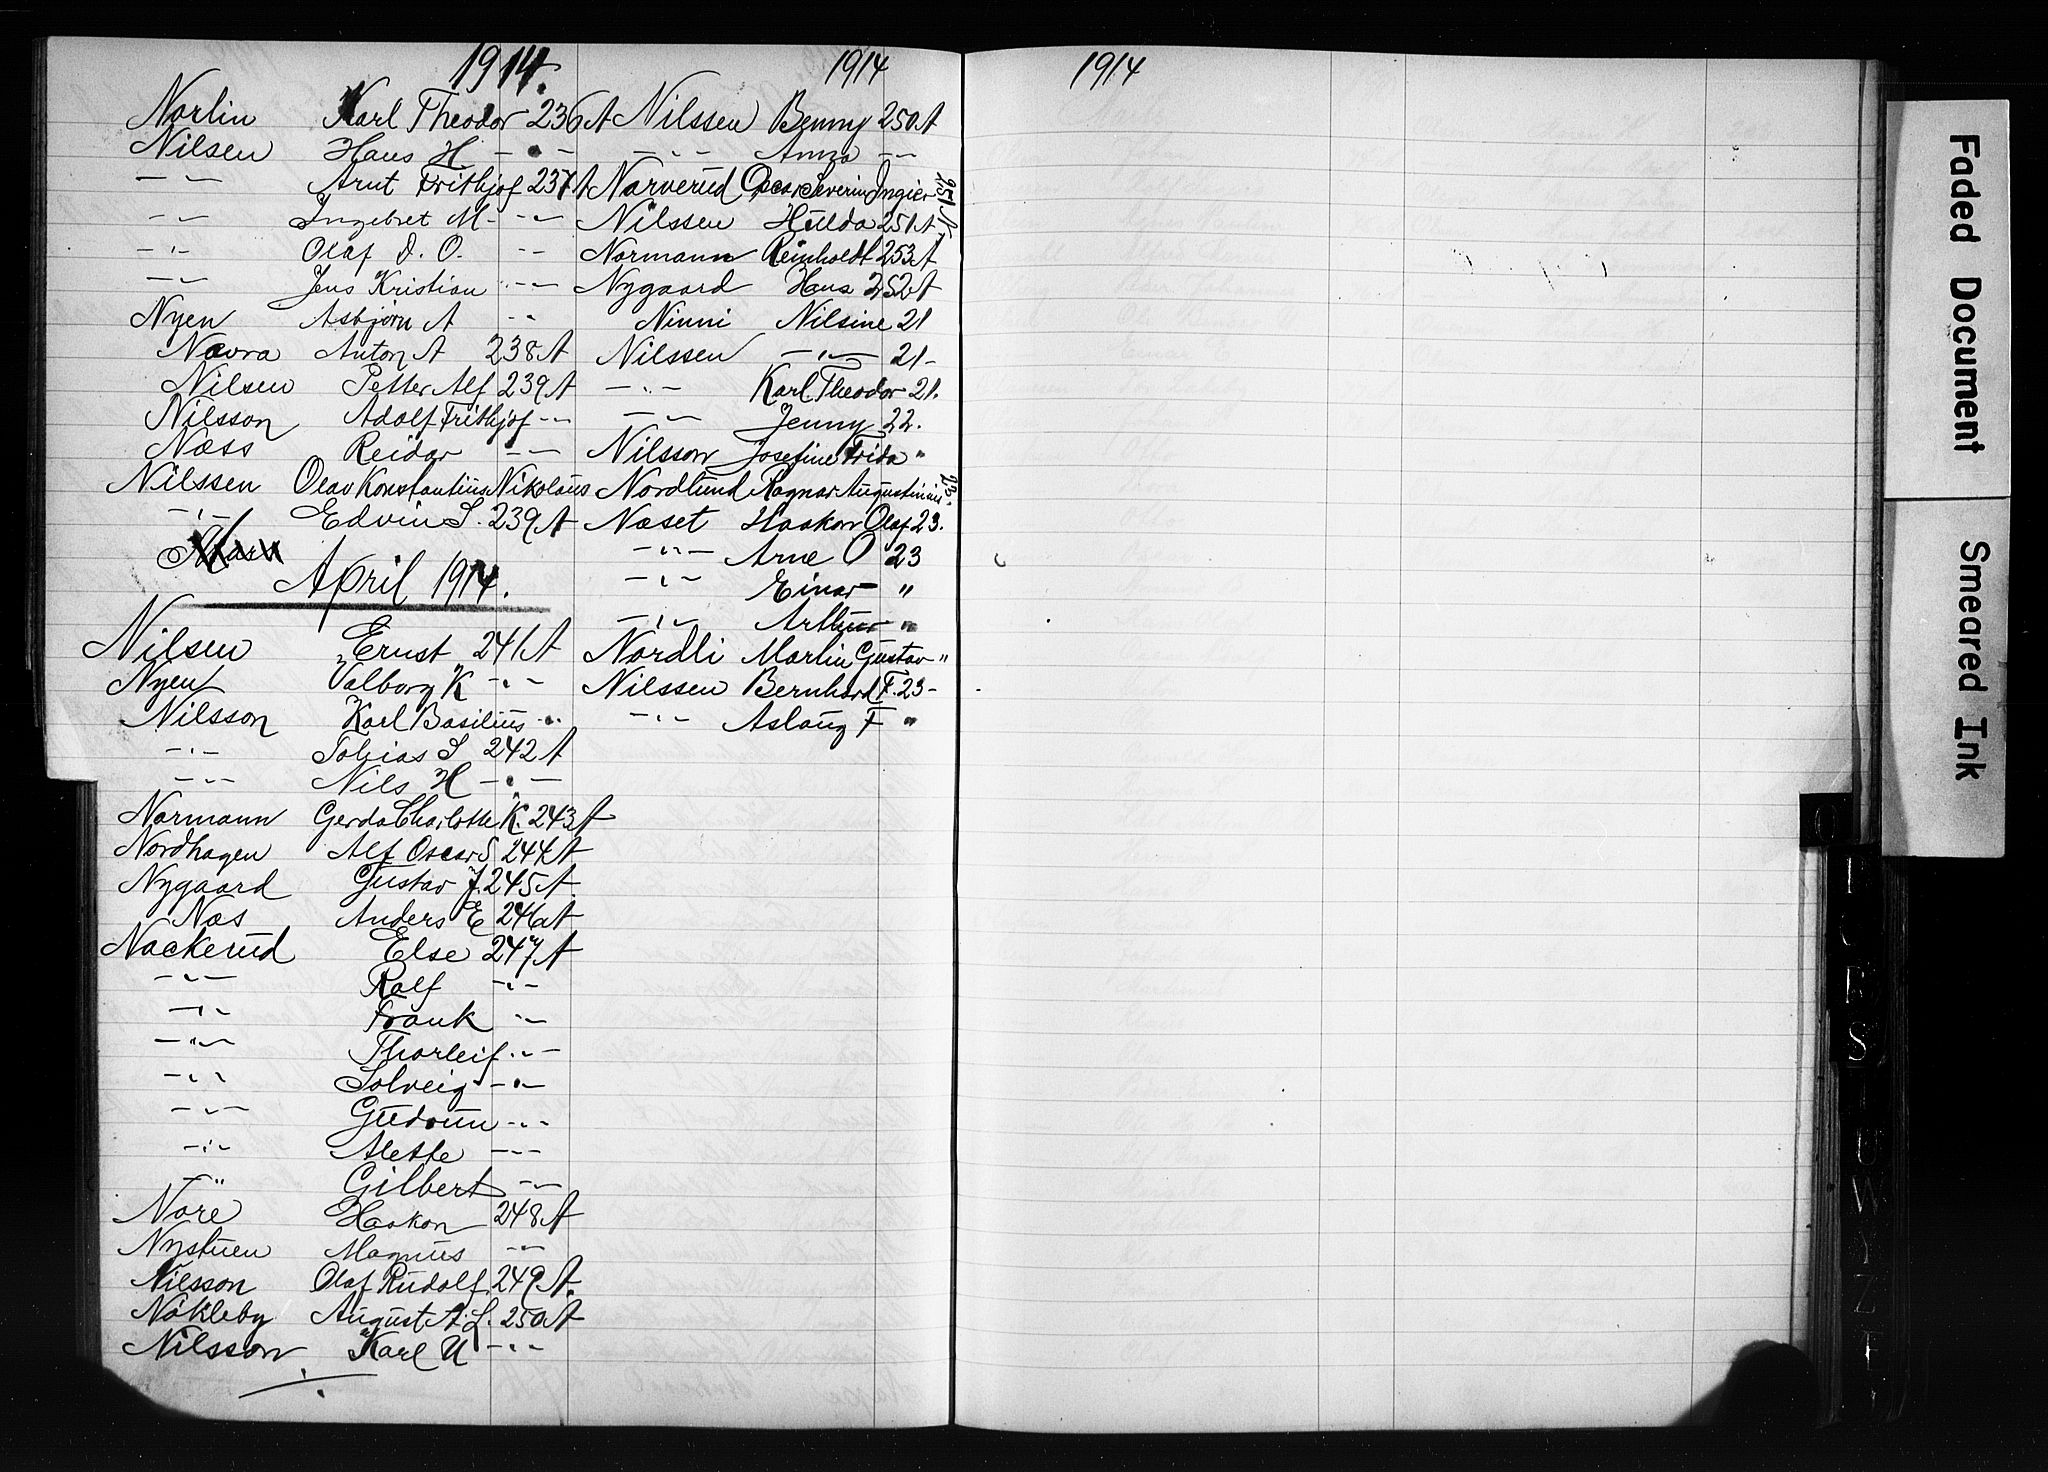 1914.
Norlin Karl Theodor 236 A
Nilsen Hans H. - " -
- " - Arnt Frithjof 237 A
- " - Ingebret M - " -
- " - Olaf D. O. - " -
- " - Jens Kristian - " -
Nyen Asbjörn A - " -
Navra Anton A 238 A
Nilsen Petter Alf 239 A
Nilsson Adolf Frithjof - " -
Næss Reidar - " -
Nilssen Olav Konstantius Nikolaus
- " - Edvin S. 239 A
April 1914.
Nilsen Ernst 241 A
Nyen Valborg K - " -
Nilsson Karl Basilius - " -
- " - Tobias S 242 A
- " - Nils H - " -
Normann Gerda Charlotte K. 243 A
Nordhagen Alf Oscar S 244 A
Nygaard Gustav J. 245 A
Næs Anders E 246 A
Nackerud Else 247 A
- " - Rolf - " -
- " - Frank - " -
- " - Thorleif - " -
- " - Solveig - " -
- " - Gudrun - " -
- " - Alette - " -
- " - Gilbert - " -
Nore Haakon 248 A
Nystuen Magnus - " -
Nilsson Olaf Rudolf 249 A.
Nökleby August A. L. 250 A
Nilsson Karl U - " -
1914
Nilssen Benny 250 A
- " - Anna - " -
Narverud Oscar Severin Ingier 251 A
Nilssen Hilda 251 A
Normann Reinholdt 253 A
Nygaard Hans 252 A
Ninni Nilsine 21
Nilssen - " - 21 -
- " - Karl Theodor 21.
- " - Jenny 22.
Nilsson Josefine Frida "
Nordlund Ragnar Augustinius 23.
Næset Haakon Olaf 23.
- " - Arne O 23
- " - Einar - "
- " - Arthur "
Nordli Martin Gustav "
Nilssen Bernhard F. 23 -
- " - Aslaug F "
1914
Faded Document
Smeared Ink
O
P
R
S
U
W
Y
Z